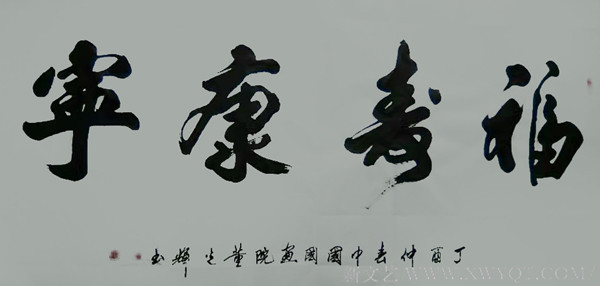 福寿康寧
丁酉仲春中國國畫院董光輝书
新文艺 WWW.XWYQI.COM